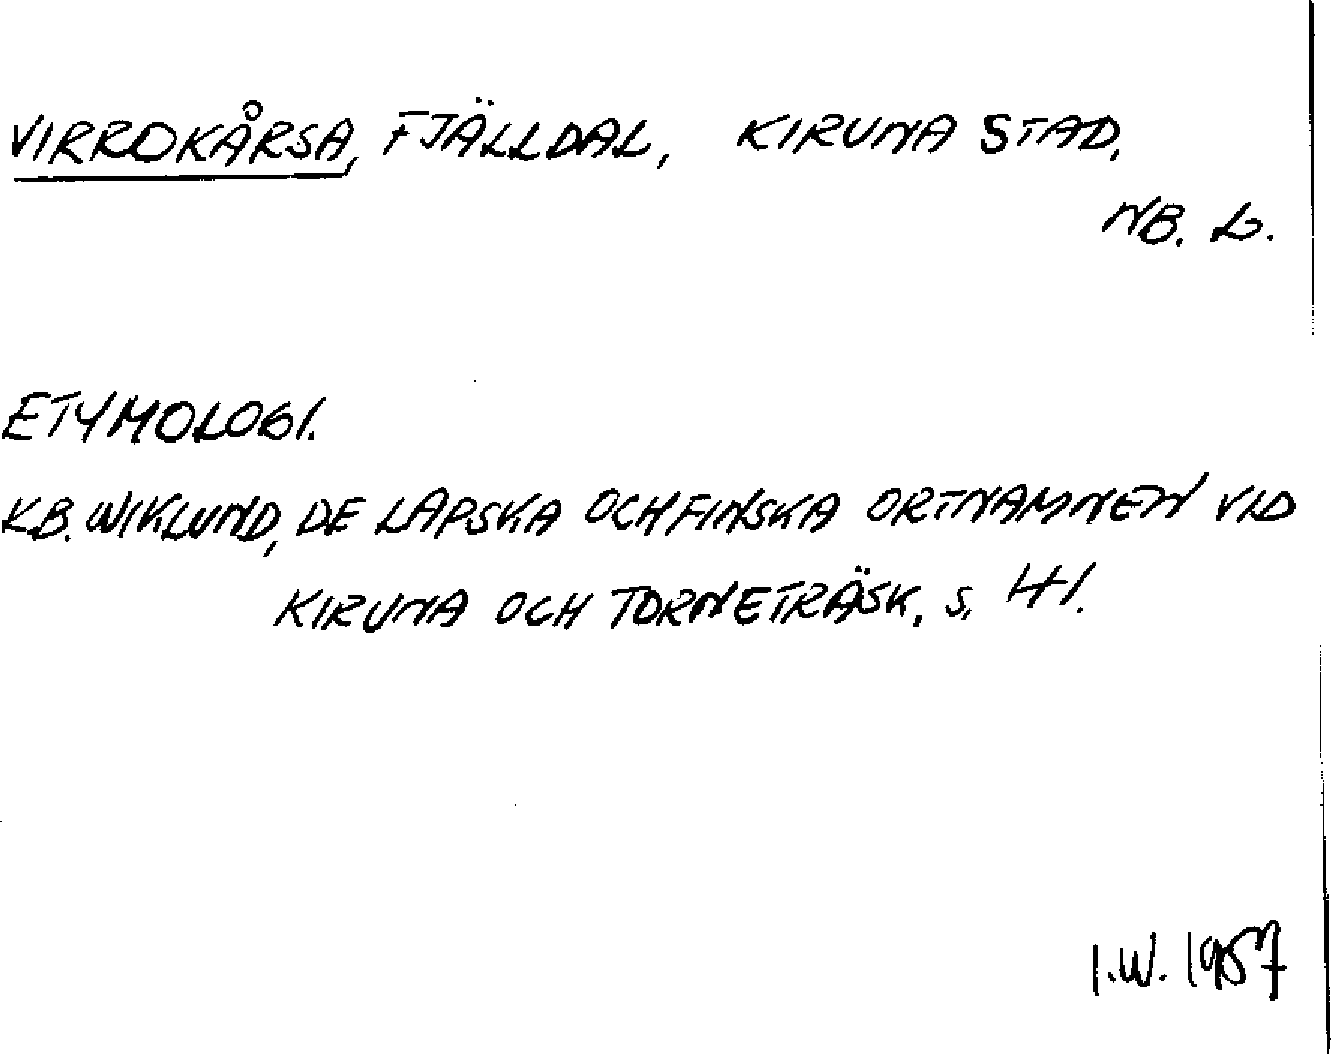 VIRROKÅRSA, FJÄLLDAL, KIRUNA STAD,
NB. L.
ETYMOLOGI.
K.B. WIKLUND, DE LAPSKA OCH FINSKA ORTNAMNEN VID
KIRUNA OCH TORNETRÄSK, S. 41.
I.W. 1957